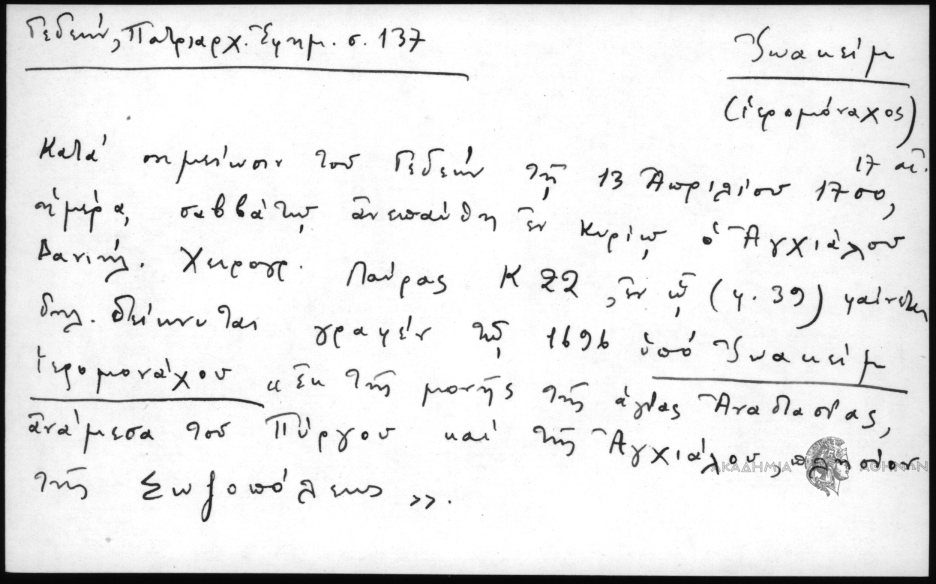 Γεδεών, Πατριαρχ. Ἐφημ. σ. 137
Ἰωακείμ
(ἱερομόναχος)
17 αἰ.
Κατά σημείωσιν του Γεδεών τῇ 13 Ἀπριλίου 1700,
ἡμέρᾳ σαββάτῳ ἀνεπαύθη ἐν Κυρίῳ ὁ Ἀγχιάλου
Δανιήλ. Χειρογρ. Λαύρας Κ 22, ἐν ᾧ (φ. 39) φαίνεται
δηλ. δείκνυται γραφέν τῷ 1696 ὑπό Ἰωακείμ
ἱερομονάχου «ἐκ τῆς μονῆς τῆς ἁγίας Ἀναστασίας,
ἀνάμεσα του Πύργου και τῆς Ἀγχιάλου, πλησίον
τῆς Σωζοπόλεως».
ΑΚΑΔΗΜΙΑ ΑΘΗΝΩΝ